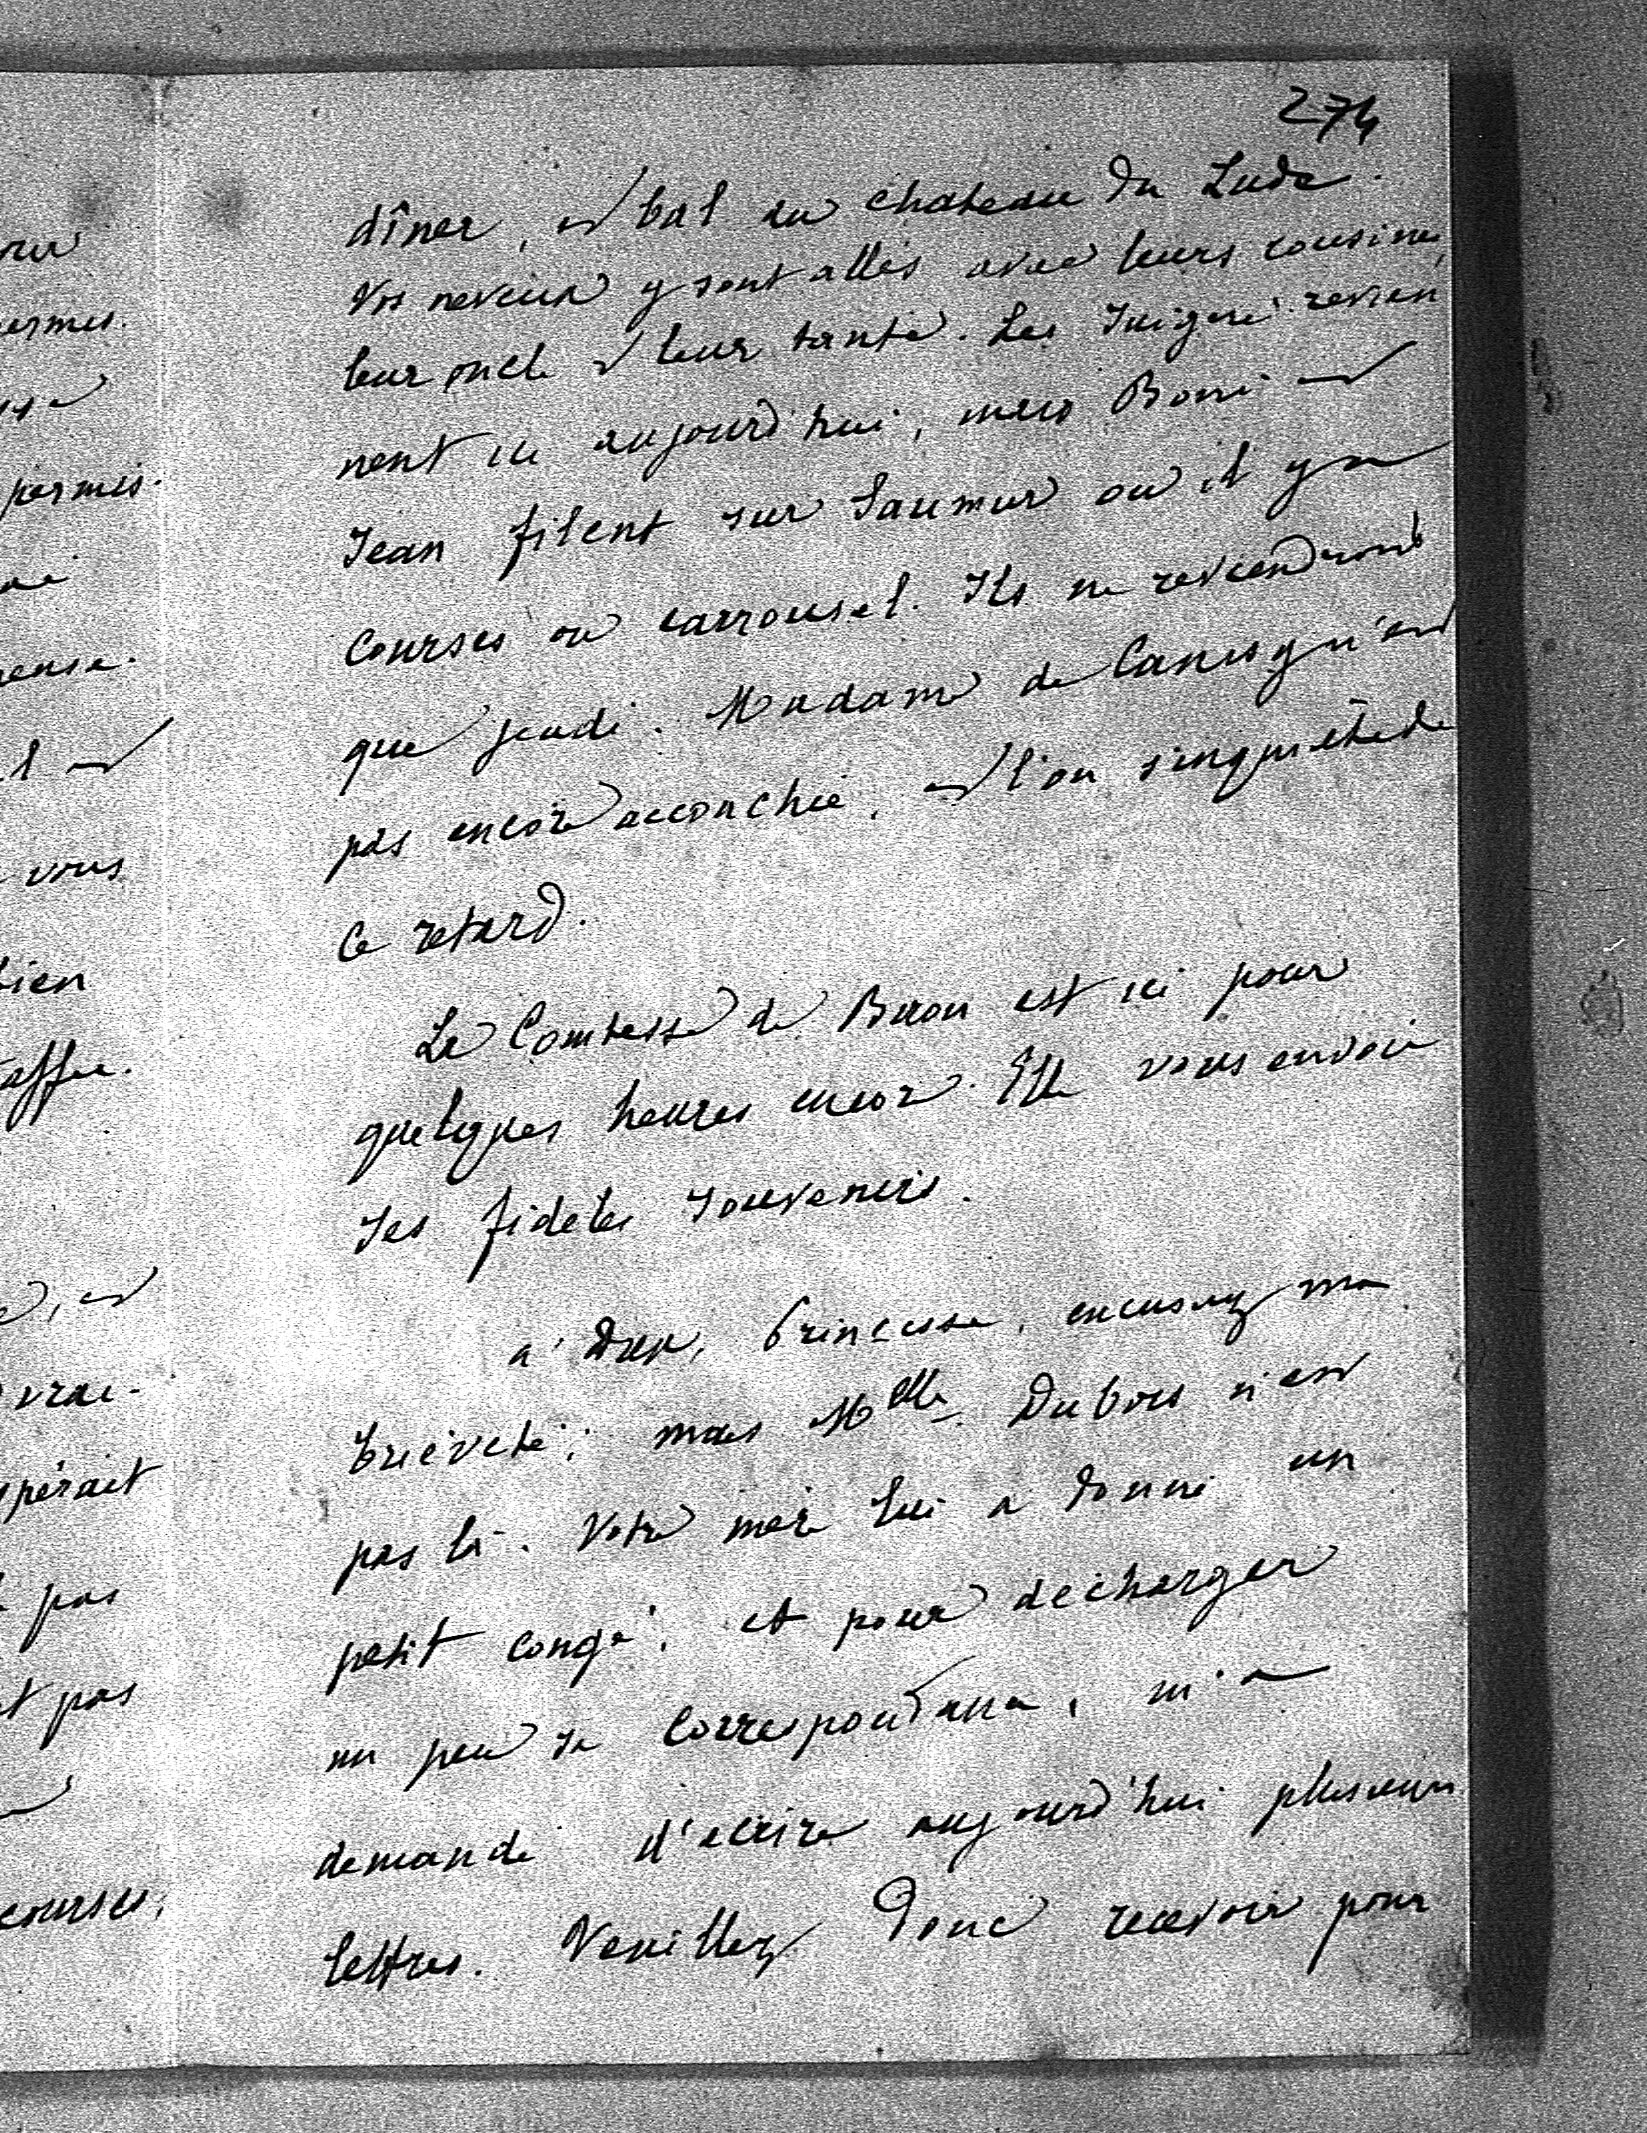 274
dîner, et bal au chateau du Lude.
Vos neveux y sont allés avec leurs cousines,
leur oncle et leur tante. Les Juigné revien
nent ici aujourd'hui, mais Boni et
Jean filent sur Saumur où il y a
courses ou carrousel. Ils ne reviendront
que jeudi. Madame de Canisy n'est
pas encore accouchée, et l'on s'inquiète de
ce retard.
La Comtesse de Biron est ici pour
quelques heures encore. Elle vous envoie
ses fidèles souvenirs.
a' Dieu, Princesse, excusez ma
brièveté; mais Mlle Dubois n'est
pas là. Votre mère lui a donné un
petit congé, et pour décharger
un peu sa correspondance, m'a
demandé d'écrire aujourd'hui plusieurs
lettres. Veuillez donc recevoir pour
permis.
vous
bien
vrai-
pérait
pas
pas
courses,